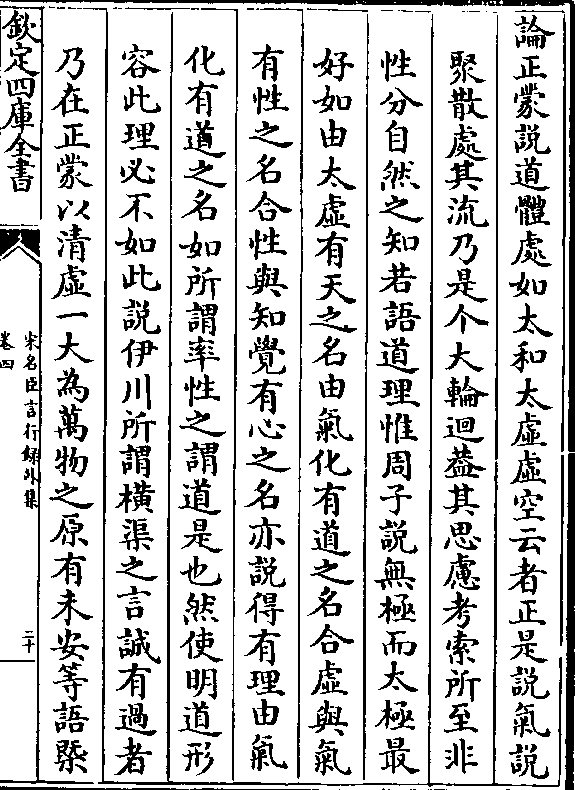 論正蒙説道體處如太和太虛虛空云者正是説氣説
聚散處其流乃是个大輪迴葢其思慮考索所至非
性分自然之知若語道理惟周子説無極而太極最
好如由太虛有天之名由氣化有道之名合虛與氣
有性之名合性與知覺有心之名亦説得有理由氣
化有道之名如所謂率性之謂道是也然使明道形
容此理必不如此説伊川所謂橫渠之言誠有過者
乃在正蒙以清虛一大為萬物之原有未安等語槩
欽定四庫全書
宋名臣言行録外集
卷四
二十